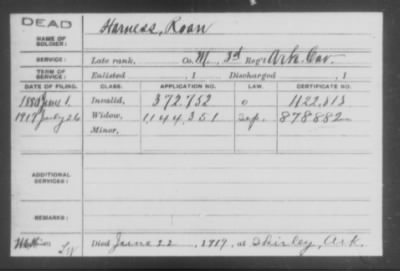 DEAD
NAME OF SOLDIER: Harness, Roan
SERVICE: Late rank, Co. M, 3d Reg't Ark. Cav.
TERM OF SERVICE: Enlisted , 1 Discharged , 1
DATE OF FILING. CLASS. APPLICATION NO. LAW. CERTIFICATE NO.
1880 June 1. Invalid, 372.752 0 1122.313
1917 July 26 Widow, 1,144,351 Sep. 878882
Minor,
ADDITIONAL SERVICES:
REMARKS:
Died June 22, 1917, at Shirley, Ark.